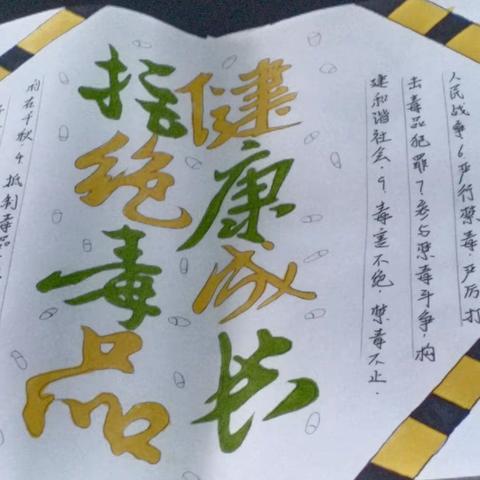 人民战争.6.严行禁毒.严厉打
击毒品犯罪.7.参与禁毒斗争.构
建和谐社会.9.毒害不绝.禁毒不止.
健康成长
拒绝毒品
在千秋.4.抵制毒品.